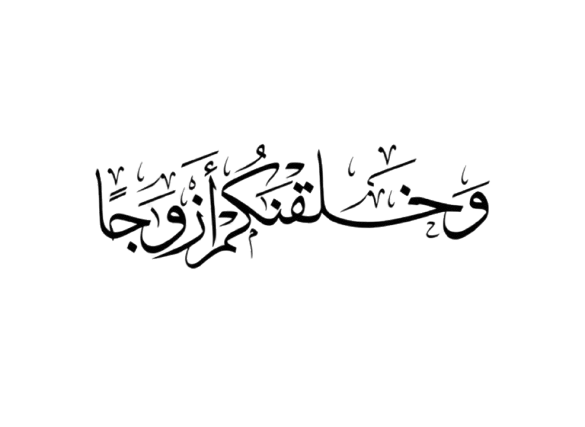 وَخَلَقْنَكُمْ أَزْوَجًا